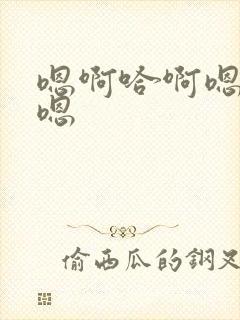 嗯啊哈~啊嗯
嗯
偷西瓜的鋼叉